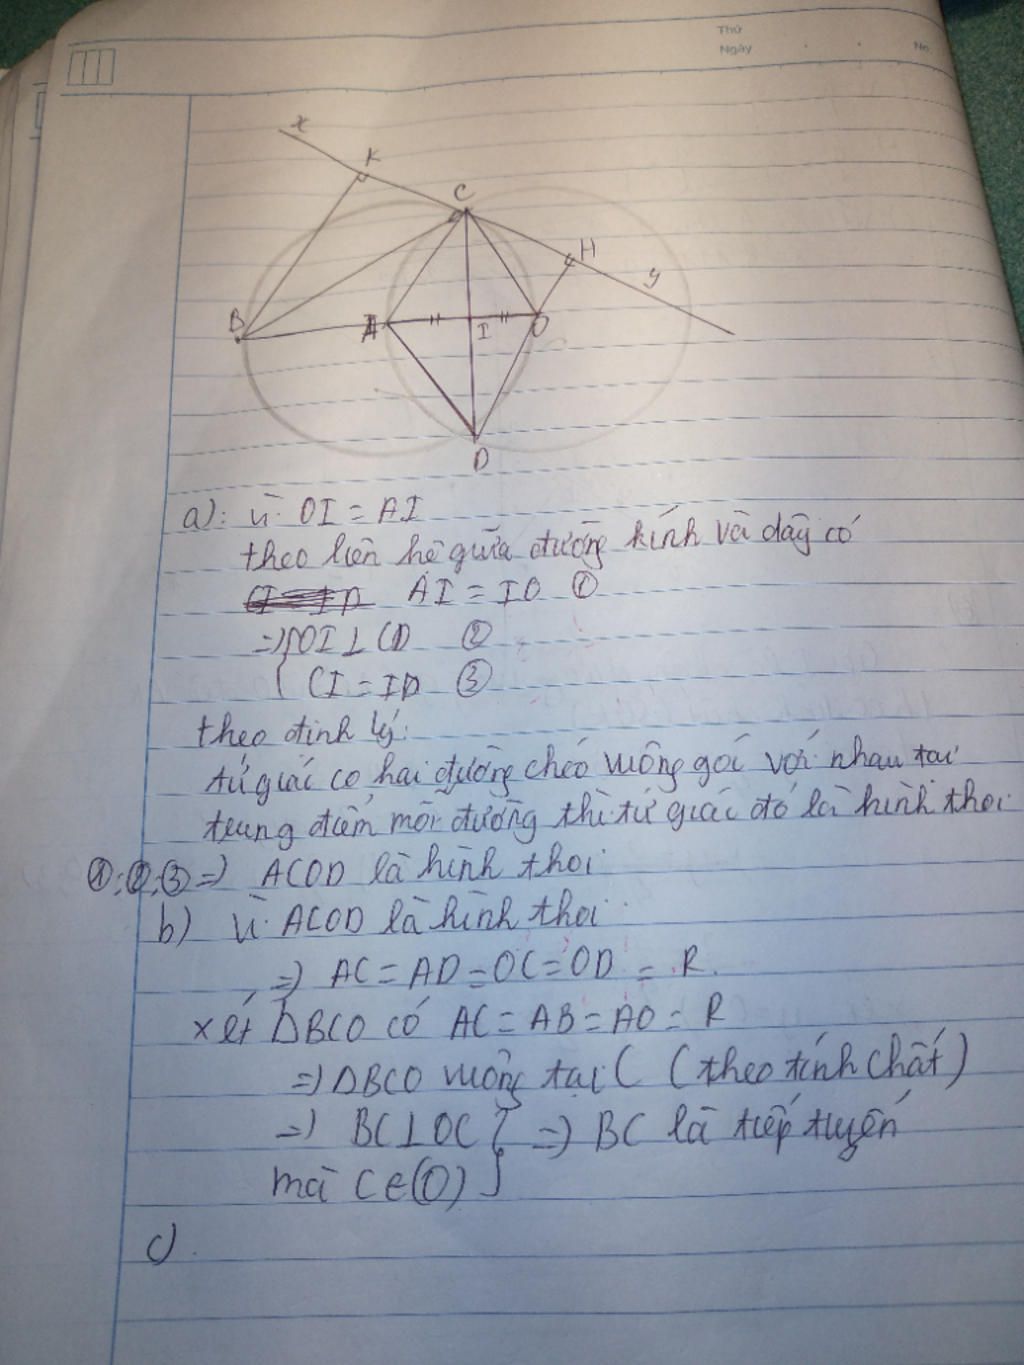 Thứ
Ngày
No.
x
K
C
H
y
B
A
I
O
D
a): vì OI = AI
theo liên hệ giữa đường kính và dây có
AI = IO ①
=> { OI ⊥ CD ②
CI = ID ③
theo định lý:
tứ giác có hai đường chéo vuông góc với nhau tại
trung điểm mỗi đường thì tứ giác đó là hình thoi
①;②;③ => ACOD là hình thoi
b) vì ACOD là hình thoi
=> AC = AD = OC = OD = R.
xét ΔBCO có AC = AB = AO = R
=> ΔBCO vuông tại C (theo tính chất)
=> BC ⊥ OC } => BC là tiếp tuyến
mà C ∈ (O)
c)